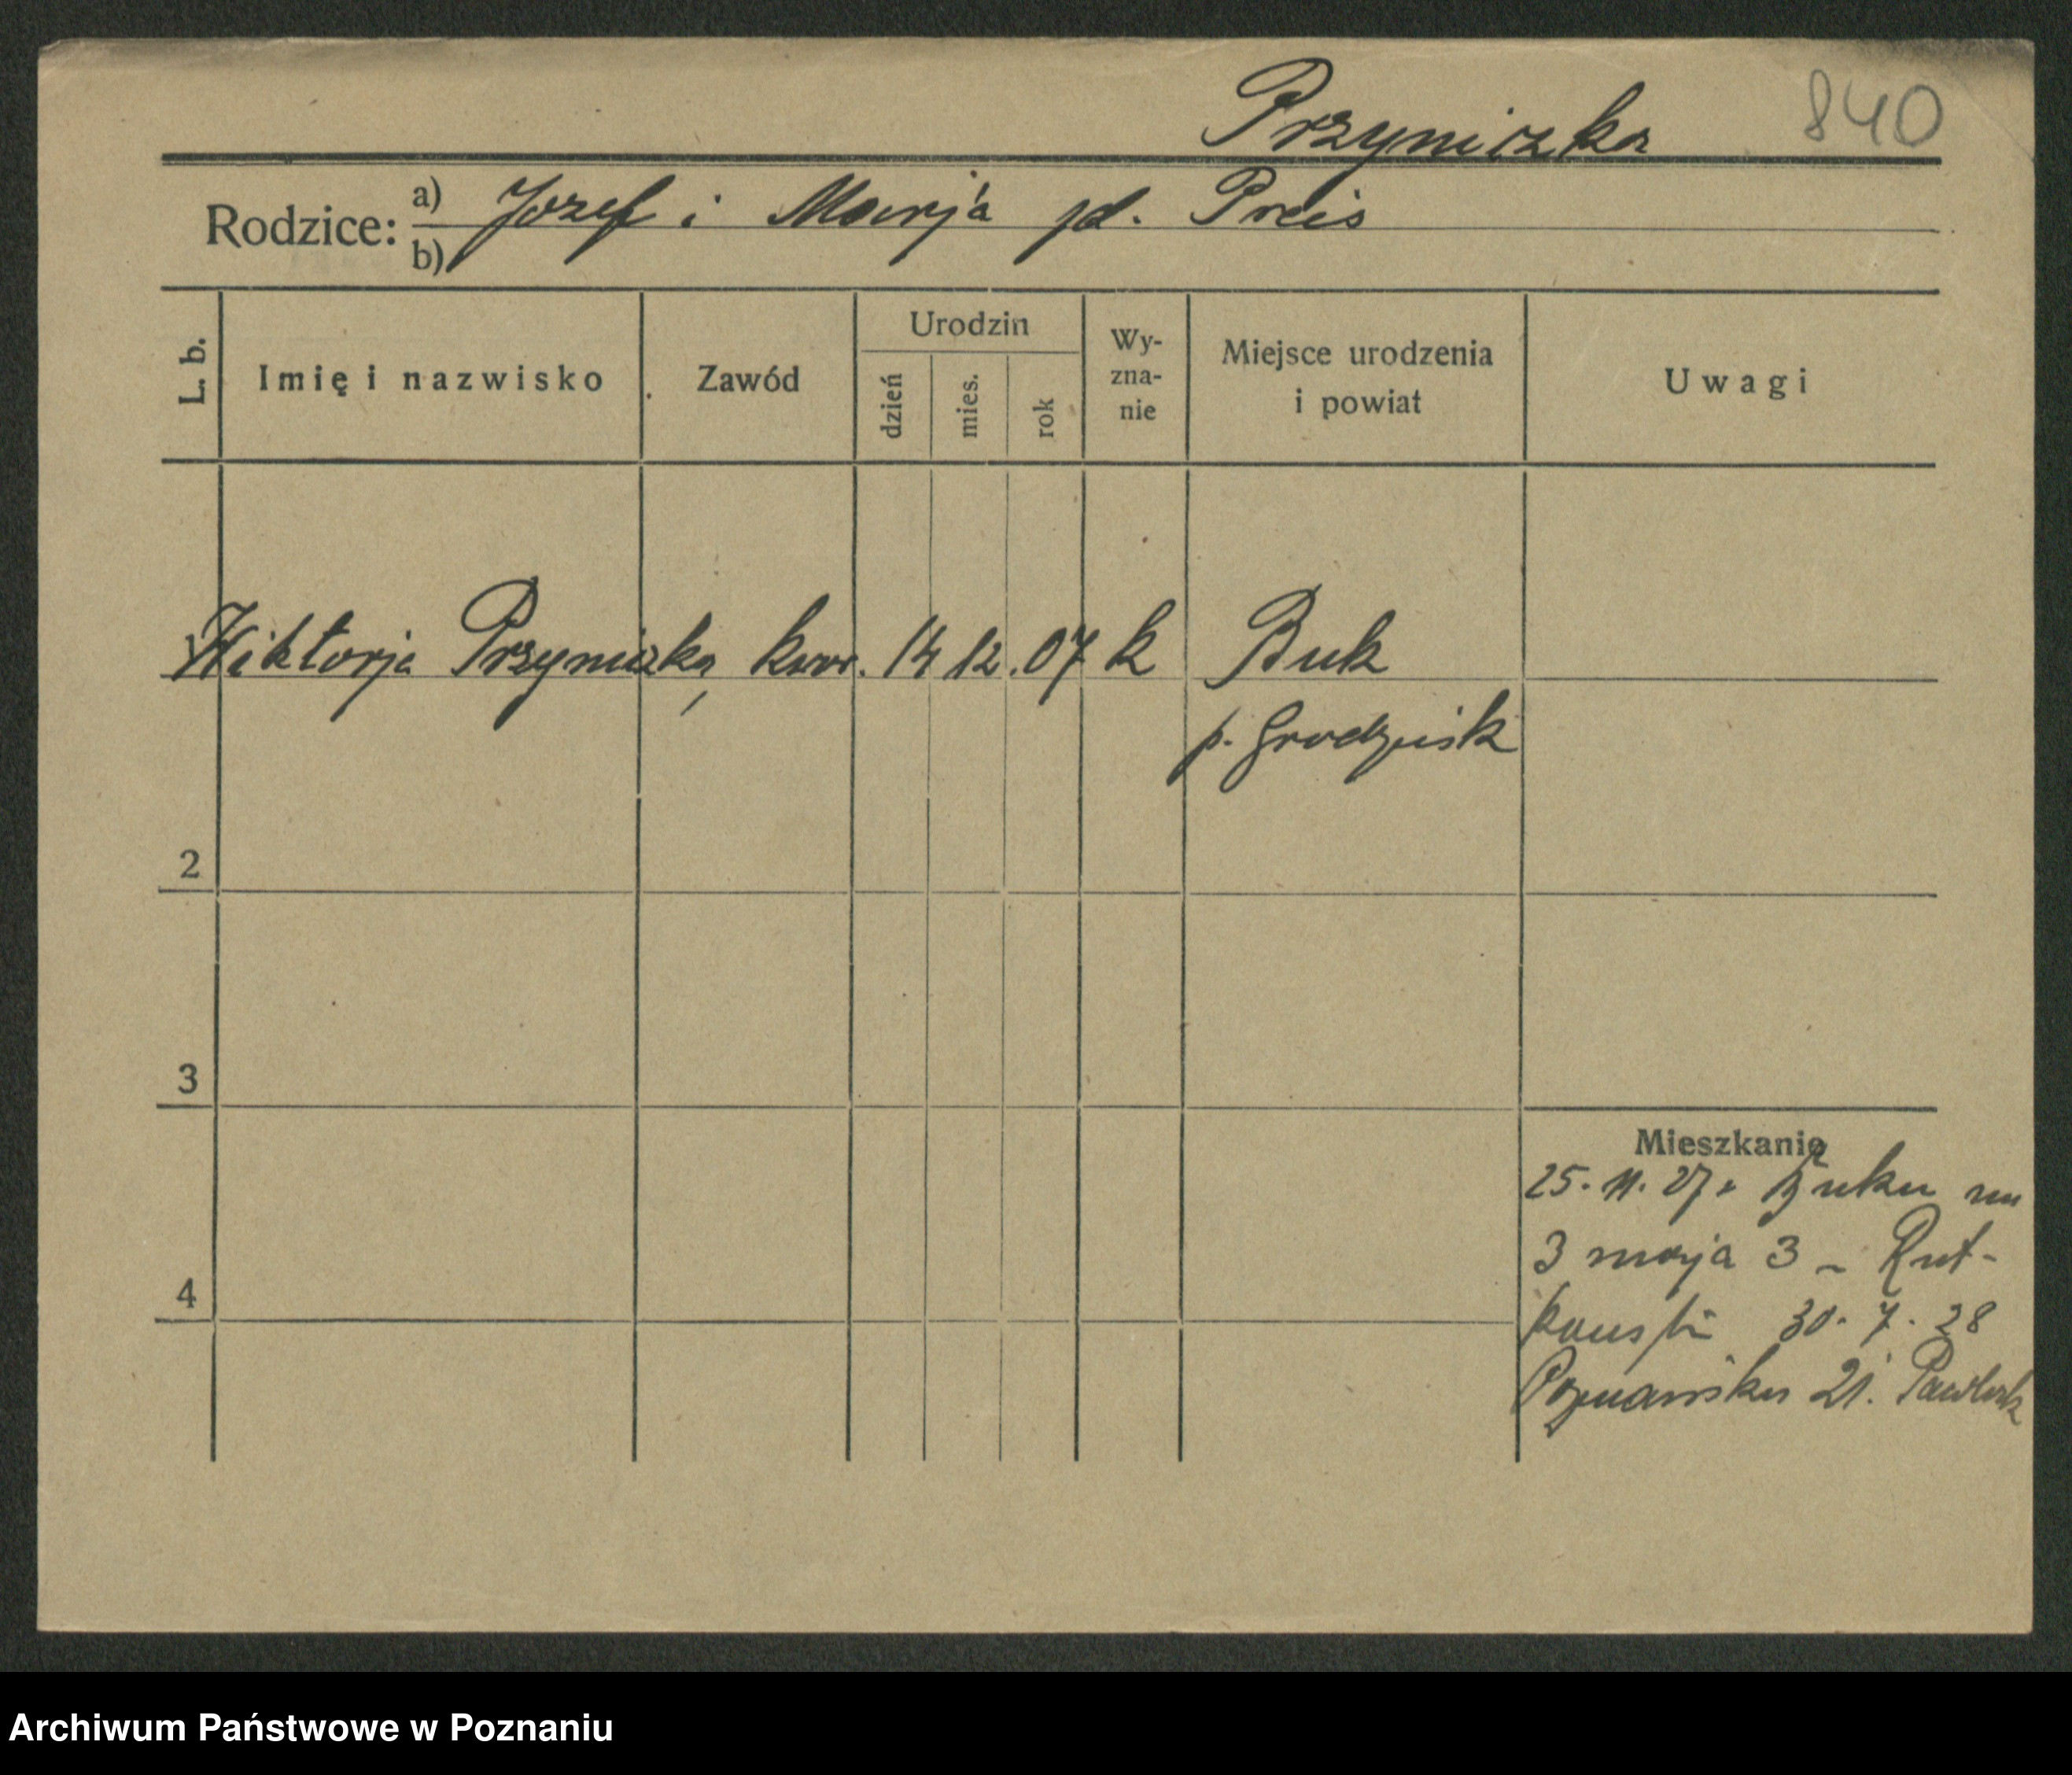 Przyniczka 840
Rodzice: a) Jozef i Marja zd. Preis
b)
L. b.
Imię i nazwisko
Zawód
Urodzin
dzień
mies.
rok
Wy-
zna-
nie
Miejsce urodzenia
i powiat
Uwagi
Wiktorja Przyniczka, 14 12. 07 k Buk
p. Grodzisk
2
3
4
Mieszkanie
25. 11. 27 z Buku
3 maja 3 – Rut-
kowski 30. 7. 28
Poznańska 21. Pawlak
Archiwum Państwowe w Poznaniu